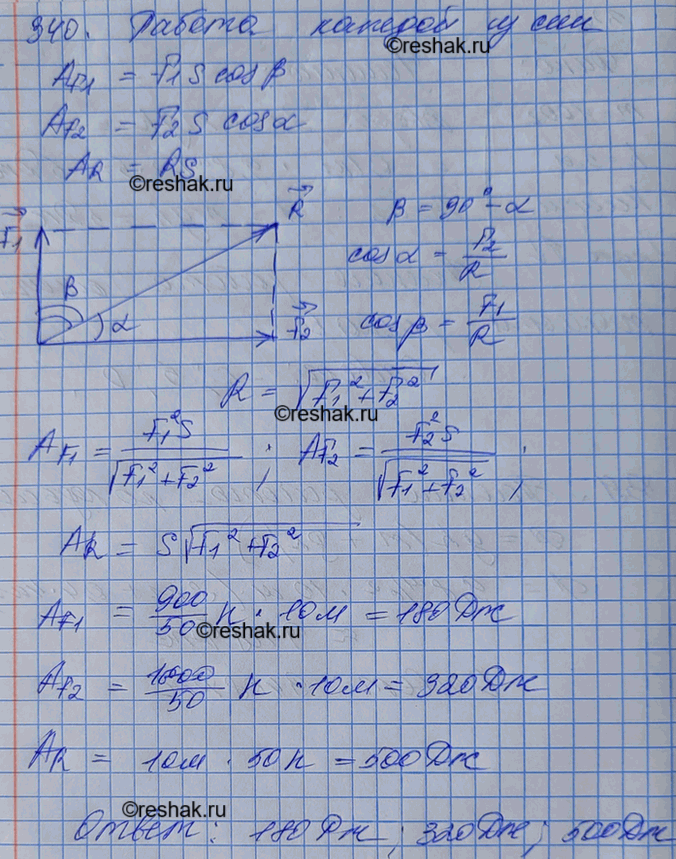 340. Работа каждой из сил
©reshak.ru
A_F1 = F1 S cos β
A_F2 = F2 S cos α
A_R = RS
©reshak.ru
F⃗1
R⃗
β
α
F⃗2
β = 90° - α
cos α = F2/R
cos β = F1/R
R = √(F1² + F2²)
©reshak.ru
A_F1 = F1²S/√(F1² + F2²) ; A_F2 = F2²S/√(F1² + F2²) ;
A_R = S√(F1² + F2²)
A_F1 = 900/50 Н · 10м = 180 Дж
©reshak.ru
A_F2 = 1600/50 Н · 10м = 320 Дж
A_R = 10м · 50Н = 500 Дж
©reshak.ru
Ответ: 180 Дж ; 320 Дж ; 500 Дж